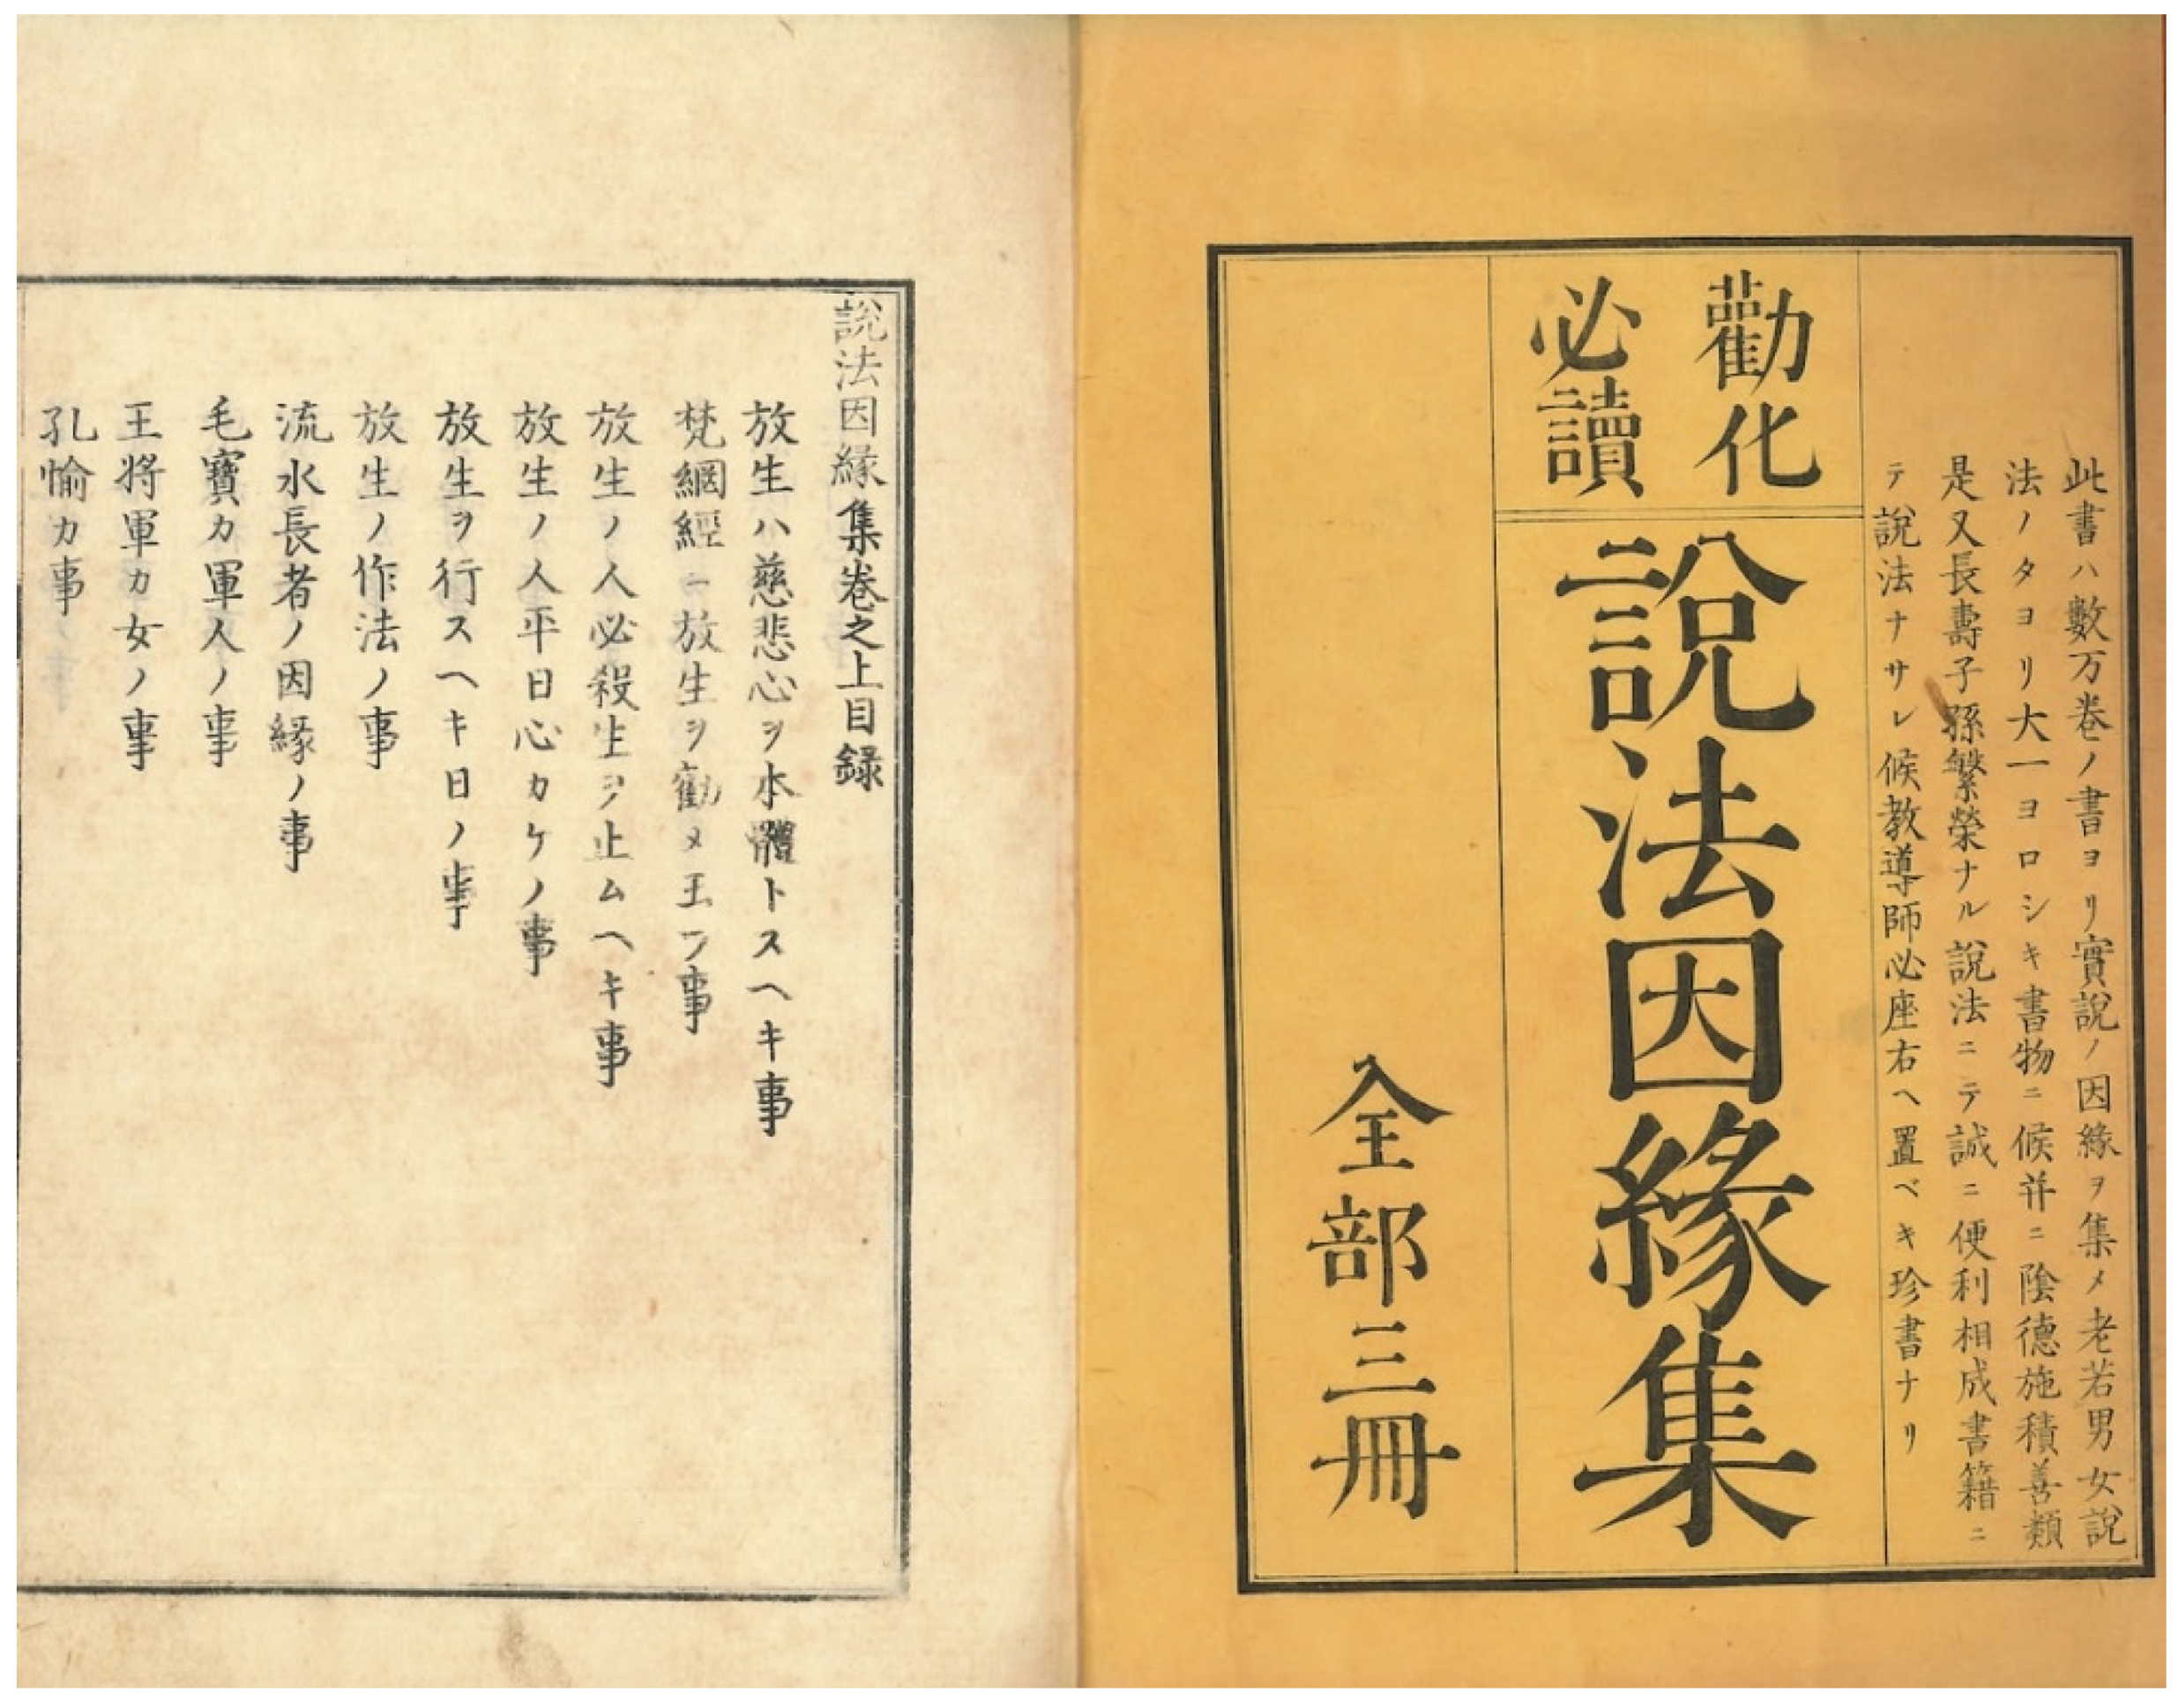 此書ハ數万卷ノ書ヨリ實說ノ因緣ヲ集メ老若男女說
法ノタヨリ大一ヨロシキ書物ニ候并ニ陰德施積善類
是又長壽子孫繁榮ナル說法ニテ誠ニ便利相成書籍ニ
テ說法ナサレ候教導師必座右ヘ置ベキ珍書ナリ
勸化
必讀
說法因緣集
全部三冊
說法因緣集卷之上目録
放生ハ慈悲心ヲ本體トスヘキ事
梵網經ニ放生ヲ勸メ玉フ事
放生ノ人必殺生ヲ止ムヘキ事
放生ノ人平日心カケノ事
放生ヲ行スヘキ日ノ事
放生ノ作法ノ事
流水長者ノ因緣ノ事
毛寶カ軍人ノ事
王将軍カ女ノ事
孔愉カ事